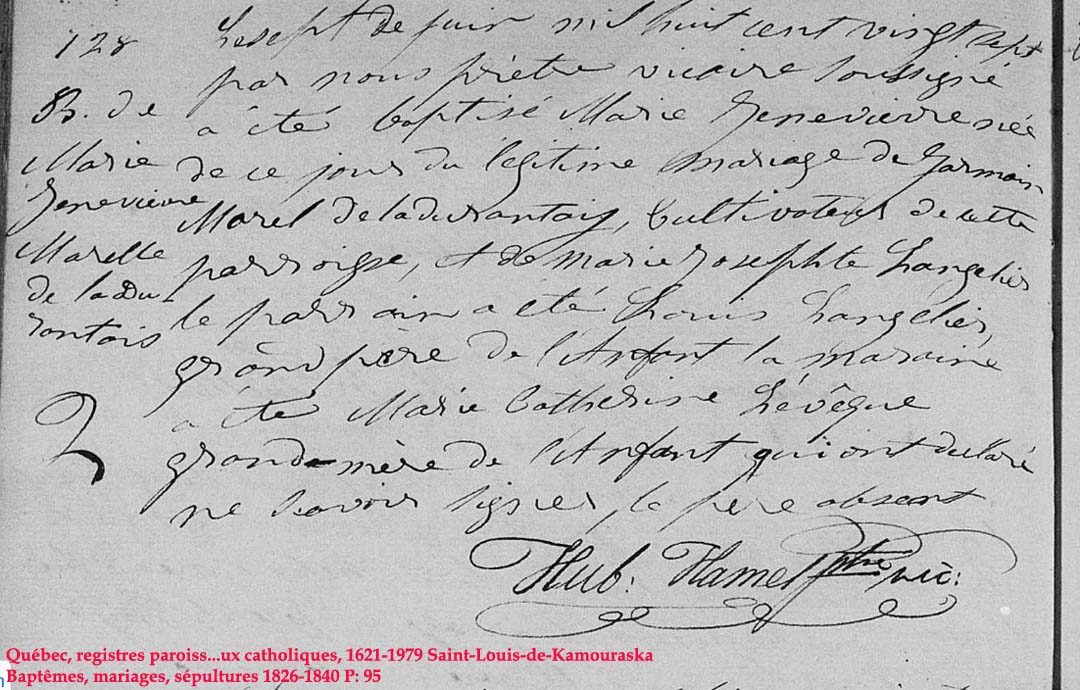 128
B. de
Marie
Genevieve
Marelle
de laDu
rontois
Lesept de juin mil huit cent vingt sept
par nous prêtre vicaire soussigné
a été baptisé Marie Genevievre née
de ce jour du légitime mariage de Germain
Morel DeladuRantais, Cultivateur de cette
parroisse, et de Marie Josephte Langelier
le parrain a été Louis Langelier,
grand père de l'Anfant la maraine
a été Marie Catherine Lévêque
grand-mère de l'Anfant qui ont declaré
ne savoir signer, le père absent
Hub. Hamel ptre vic:
Québec, registres paroiss...ux catholiques, 1621-1979 Saint-Louis-de-Kamouraska
Baptêmes, mariages, sépultures 1826-1840 P: 95